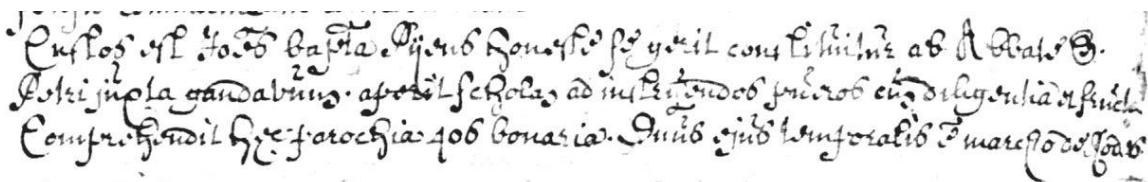 Custos est Joẽs bapta Pijens honestè se gerit constituitur ab Abbate S.
Petri juxta gandavum. aperit scholaz ad instruendos pueros cuz diligentia et fructu
Comprehendit hęc parochia 408 bonaria. Dnus ejus temporalis ẽ